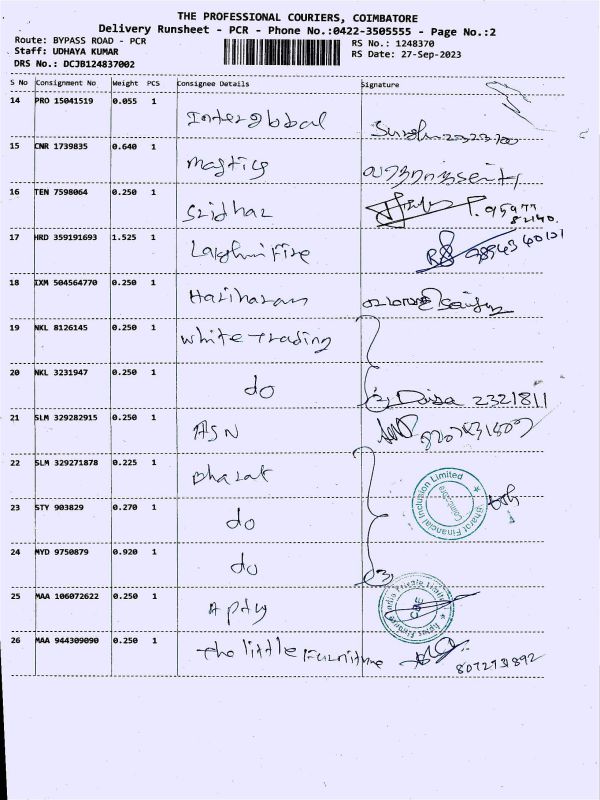 THE PROFESSIONAL COURIERS, COIMBATORE
Delivery Runsheet - PCR - Phone No.:0422-3505555 - Page No.:2
Route: BYPASS ROAD - PCR
RS No.: 1248370
Staff: UDHAYA KUMAR
RS Date: 27-Sep-2023
DRS No.: DCJB124837002
S No Consignment No Weight PCS Consignee Details Signature
14 PRO 15041519 0.055 1 Interglobal
15 CNR 1739835 0.640 1
16 TEN 7598064 0.250 1 Sridhar
17 HRD 359191693 1.525 1 Lakshmi Fire
18 IXM 504564770 0.250 1 Hariharan
19 NKL 8126145 0.250 1 White Trading
20 NKL 3231947 0.250 1 do 2321811
21 SLM 329282915 0.250 1 ASN
22 SLM 329271878 0.225 1 Bharat
Bharat Financial Inclusion Limited
Coimbatore
23 STY 903829 0.270 1 do
24 MYD 9750879 0.920 1 do
25 MAA 106072622 0.250 1
CBE
26 MAA 944309090 0.250 1 The little Furniture